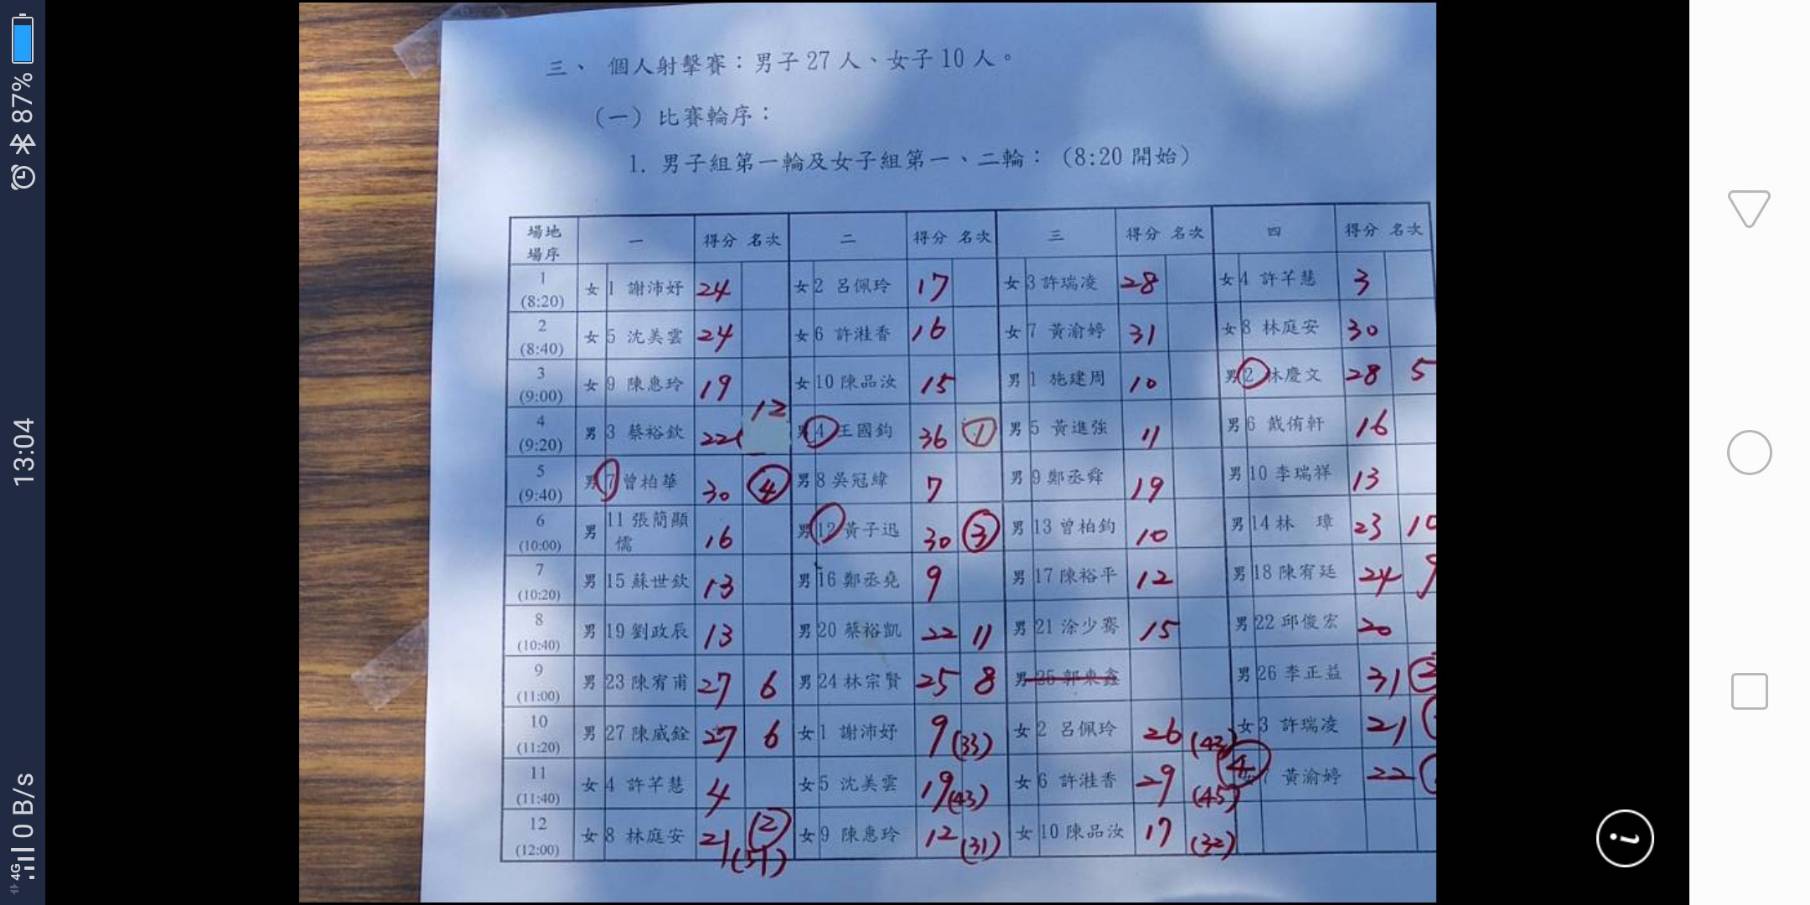 三、 個人射擊賽：男子 27 人、女子 10 人。
（一）比賽輪序：
1. 男子組第一輪及女子組第一、二輪：（8:20 開始）
場地 場序 一 得分 名次 二 得分 名次 三 得分 名次 四 得分 名次
1 (8:20) 女 1 謝沛妤 24 女 2 呂佩玲 17 女 3 許瑞凌 28 女 4 許芊慧 3
2 (8:40) 女 5 沈美雲 24 女 6 許溎香 16 女 7 黃渝婷 31 女 8 林庭安 30
3 (9:00) 女 9 陳惠玲 19 女 10 陳品汝 15 男 1 施建周 10 男 2 林慶文 28 5
4 (9:20) 男 3 蔡裕欽 22 12 男 4 王國鈞 36 1 男 5 黃進強 11 男 6 戴侑軒 16
5 (9:40) 男 7 曾柏華 30 4 男 8 吳冠緯 7 男 9 鄭丞舜 19 男 10 李瑞祥 13
6 (10:00) 男 11 張簡顯儒 16 男 12 黃子迅 30 3 男 13 曾柏鈞 10 男 14 林 璋 23 10
7 (10:20) 男 15 蘇世欽 13 男 16 鄭丞堯 9 男 17 陳裕平 12 男 18 陳宥廷 24 9
8 (10:40) 男 19 劉政辰 13 男 20 蔡裕凱 22 11 男 21 涂少騫 15 男 22 邱俊宏 20
9 (11:00) 男 23 陳宥甫 27 6 男 24 林宗賢 25 8 男 25 郭東鑫 男 26 李正益 31 2
10 (11:20) 男 27 陳威銓 27 6 女 1 謝沛妤 9 (33) 女 2 呂佩玲 26 (43) 女 3 許瑞凌 21
11 (11:40) 女 4 許芊慧 4 女 5 沈美雲 19 (43) 女 6 許溎香 29 (45) 4 黃渝婷 22
12 (12:00) 女 8 林庭安 21 (51) 2 女 9 陳惠玲 12 (31) 女 10 陳品汝 17 (32)
87%
13:04
4G 0 B/s
i